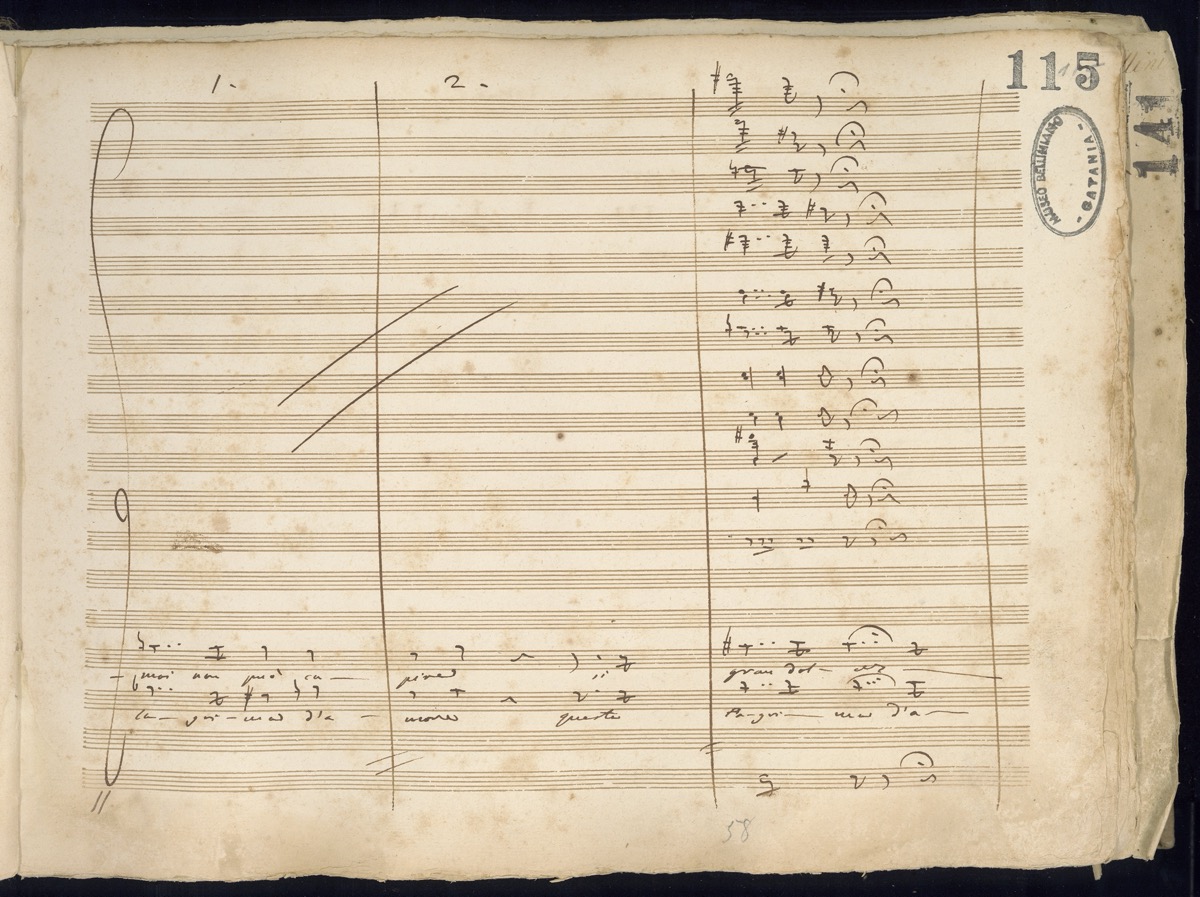 1. 2.
115
141
MUSEO BELLINIANO - CATANIA -
mai non può ca— pire gran dol— cez—
la— gri—ma d'a— more questa la—gri— ma d'a—
58